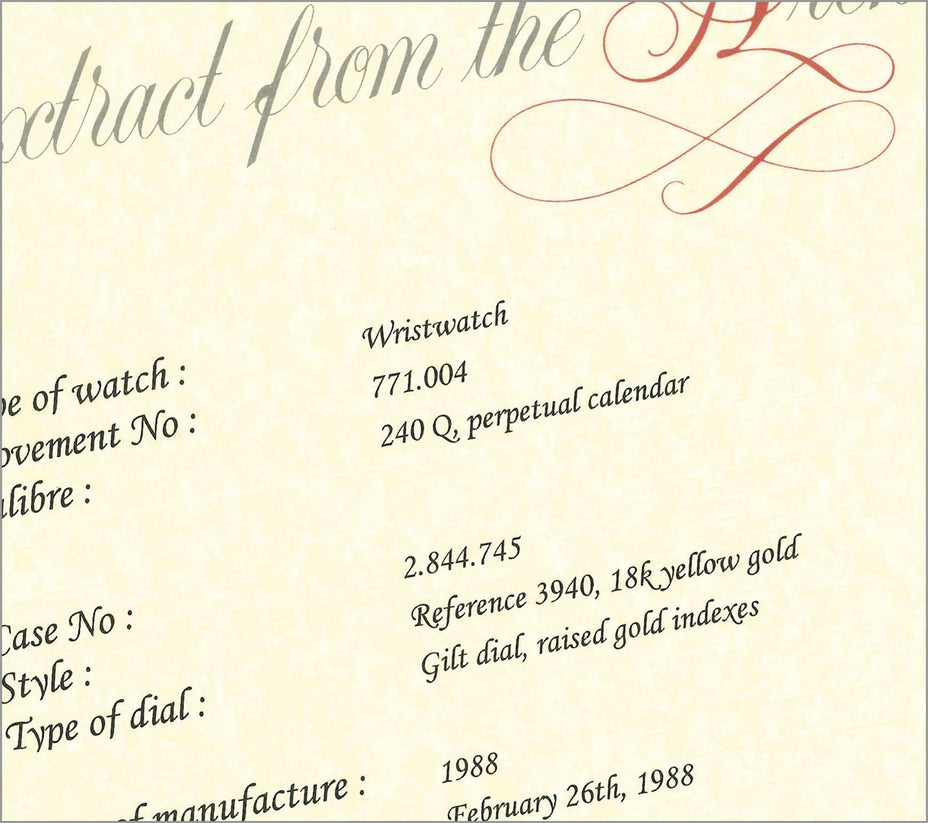 xtract from the
Wristwatch
pe of watch :
771.004
ovement No :
240 Q, perpetual calendar
libre :
2.844.745
Case No :
Reference 3940, 18k yellow gold
Style :
Gilt dial, raised gold indexes
Type of dial :
1988
of manufacture :
February 26th, 1988